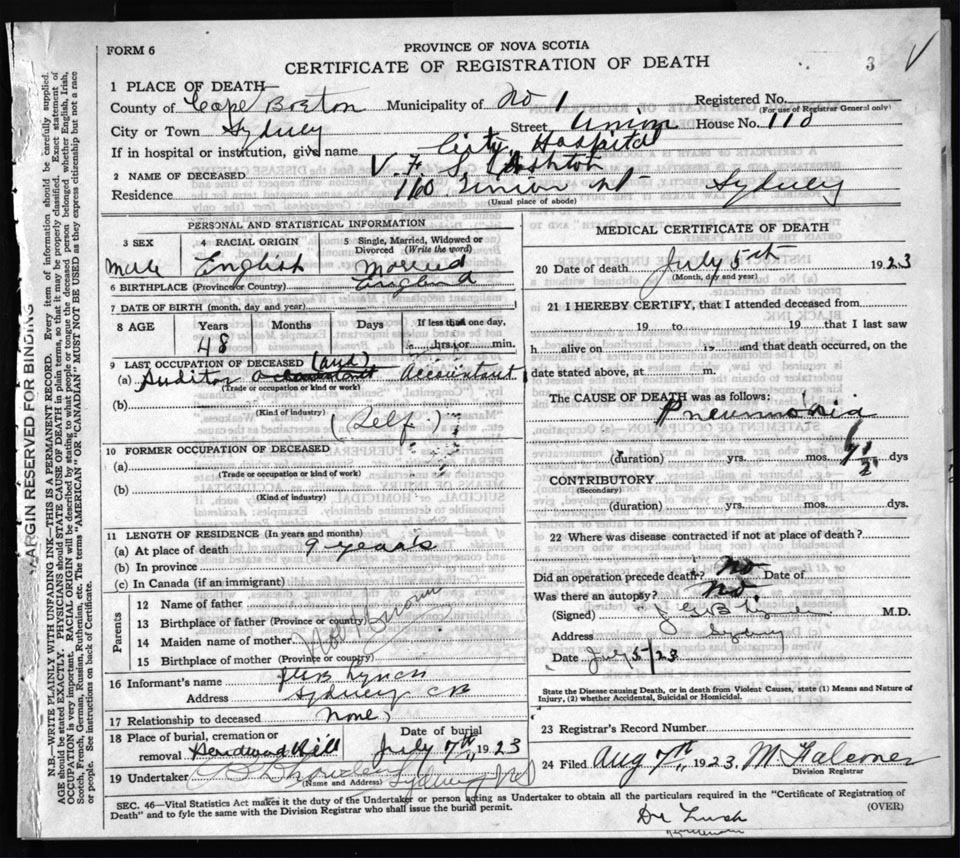 FORM 6
PROVINCE OF NOVA SCOTIA
CERTIFICATE OF REGISTRATION OF DEATH
3
1 PLACE OF DEATH—
County of Cape Breton Municipality of No 1 Registered No.
(For use of Registrar General only)
City or Town Sydney Street Union House No. 110
If in hospital or institution, give name City Hospital
2 NAME OF DECEASED V. F. S. Ashton
Residence 160 Union St Sydney
(Usual place of abode)
PERSONAL AND STATISTICAL INFORMATION
3 SEX 4 RACIAL ORIGIN 5 Single, Married, Widowed or Divorced (Write the word)
Male English Married
6 BIRTHPLACE (Province or Country) England
7 DATE OF BIRTH (month, day and year)
8 AGE Years Months Days If less than one day,
48 hrs. or min.
9 LAST OCCUPATION OF DECEASED (and)
(a) Auditor Accountant Accountant
(Trade or occupation or kind of work)
(b)
(Kind of industry)
(Self)
10 FORMER OCCUPATION OF DECEASED
(a)
(Trade or occupation or kind of work)
(b)
(Kind of industry)
11 LENGTH OF RESIDENCE (In years and months)
(a) At place of death 9 years
(b) In province
(c) In Canada (if an immigrant)
Parents
12 Name of father
13 Birthplace of father (Province or country)
14 Maiden name of mother
15 Birthplace of mother (Province or country)
Not Known
16 Informant's name Lynch
Address Sydney CB
17 Relationship to deceased None
18 Place of burial, cremation or removal Hardwood Hill Date of burial July 7th 1923
19 Undertaker Sydney NS
(Name and Address)
MEDICAL CERTIFICATE OF DEATH
20 Date of death July 5th 1923
(Month, day and year)
21 I HEREBY CERTIFY, that I attended deceased from
19 to 19 that I last saw
h alive on 19 and that death occurred, on the
date stated above, at m.
The CAUSE OF DEATH was as follows:
Pneumonia
(duration) yrs. mos. dys
CONTRIBUTORY
(Secondary)
(duration) yrs. mos. dys.
22 Where was disease contracted if not at place of death?
Did an operation precede death? No Date of
Was there an autopsy? No
(Signed) M.D.
Address Sydney
Date July 5/23
State the Disease causing Death, or in death from Violent Causes, state (1) Means and Nature of Injury, (2) whether Accidental, Suicidal or Homicidal.
23 Registrar's Record Number
24 Filed Aug 7th 1923, M Falconer
Division Registrar
SEC. 46—Vital Statistics Act makes it the duty of the Undertaker or person acting as Undertaker to obtain all the particulars required in the "Certificate of Registration of
Death" and to fyle the same with the Division Registrar who shall issue the burial permit.
(OVER)
MARGIN RESERVED FOR BINDING
N.B.—WRITE PLAINLY WITH UNFADING INK—THIS IS A PERMANENT RECORD. Every item of information should be carefully supplied.
AGE should be stated EXACTLY. PHYSICIANS should STATE CAUSE OF DEATH in plain terms, so that it may be properly classified. Exact statement of
OCCUPATION is very important. RACIAL ORIGIN will be described by stating to what people or tongue the deceased person belonged whether English, Irish,
Scotch, French, German, Russian, Ruthenian, etc. The terms "AMERICAN" OR "CANADIAN" MUST NOT BE USED as they express citizenship but not a race
or people. See instructions on back of Certificate.